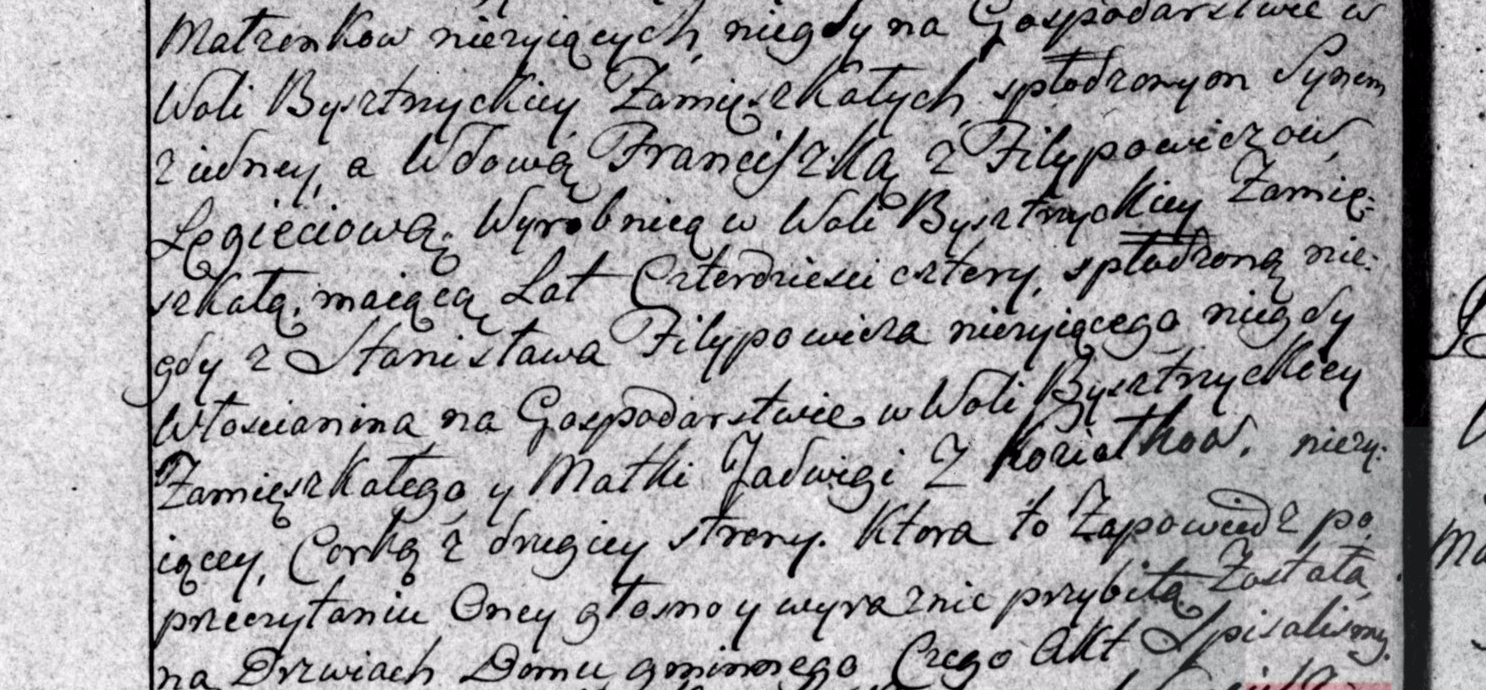 Matzonkow nieżyiących, niegdy na Gospodarstwie w
Woli Bysztrzyckiey Zamięszkałych, spłodzonym Synem
z iedney, a Wdową Franciszką z Filypowiczow,
Łęgieciową. Wyrobnicą w Woli Bysztrzyckiey Zamię=
szkałą, maiącą Lat Czterdziesci cztery, spłodzoną nie:
gdy z Stanisława Filypowicza nieżyiącego niegdy
Włoscianina na Gospodarstwie w Woli Bysztrzyckiey
Zamięszkałego y Matki Jadwigi Z Koziołkow. nieży:
iącey, Corką z drugiey strony. Ktora to Zapowiedz po
przeczytaniu Oney głosno y wyraznie przybitą Została,
na Drzwiach Domu gminnego Czego Akt Spisalismy.